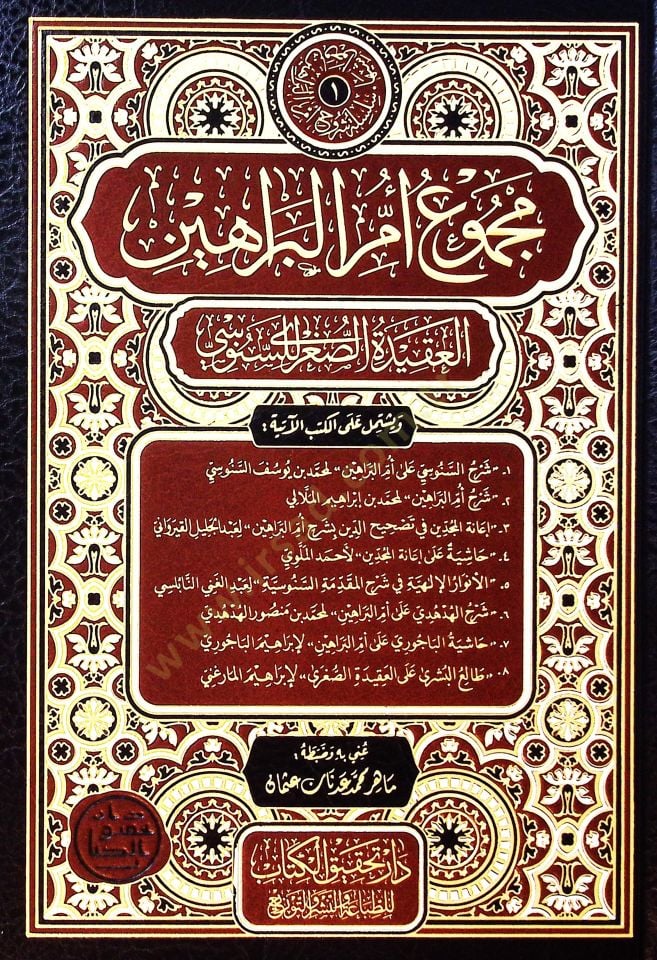 ١
مَجْمُوعُ أُمِّ البَرَاهِينِ
العَقِيدَةُ الصُّغْرَى لِلسَّنُوسِيِّ
وَيَشْتَمِلُ عَلَى الكتب الآتِيَةِ :
١. "شَرْحُ السَّنُوسِيِّ عَلَى أُمِّ البَرَاهِين" لمحمَّد بن يُوسُفَ السَّنُوسِيِّ
٢. "شَرْحُ أُمِّ البَرَاهِين" لمحمَّد بن إبراهِيم الملَّالي
٣. "إعَانَةُ المُجِدِّين في تَصْحِيحِ الدِّين بِشَرْحِ أُمِّ البَرَاهِين" لِعَبْدِ الجَلِيل القَيْرَوَاني
٤. حَاشِيَةٌ عَلَى إعَانَة المُجِدِّين" لأحمَد الملَّوِي
٥. "الأَنْوَارُ الإلهِيَّة في شَرْحِ المقَدِّمَة السَّنُوسِيَّة" لِعَبْدِ الغَنِي النَّابُلسِي
٦. "شَرْحُ الهُدْهُدِيِّ عَلَى أُمِّ البَرَاهِين" لمحمَّد بن مَنصُور الهُدْهُدِيِّ
٧. "حَاشِيَةُ البَاجُورِيِّ عَلَى أُمِّ البَرَاهِين" لإبراهِيمَ البَاجُورِيِّ
٨. "طَالِعُ البُشْرَى عَلَى العَقِيدَةِ الصُّغْرَى" لإبراهِيم المارغنِي
عُنِيَ بِهِ وَضَبَطَهُ :
مَاهِر محمَّد عَدنَان عثمان
دَار تحقيق الكتاب
للطباعة والنشر والتوزيع
www.irsad.com.tr